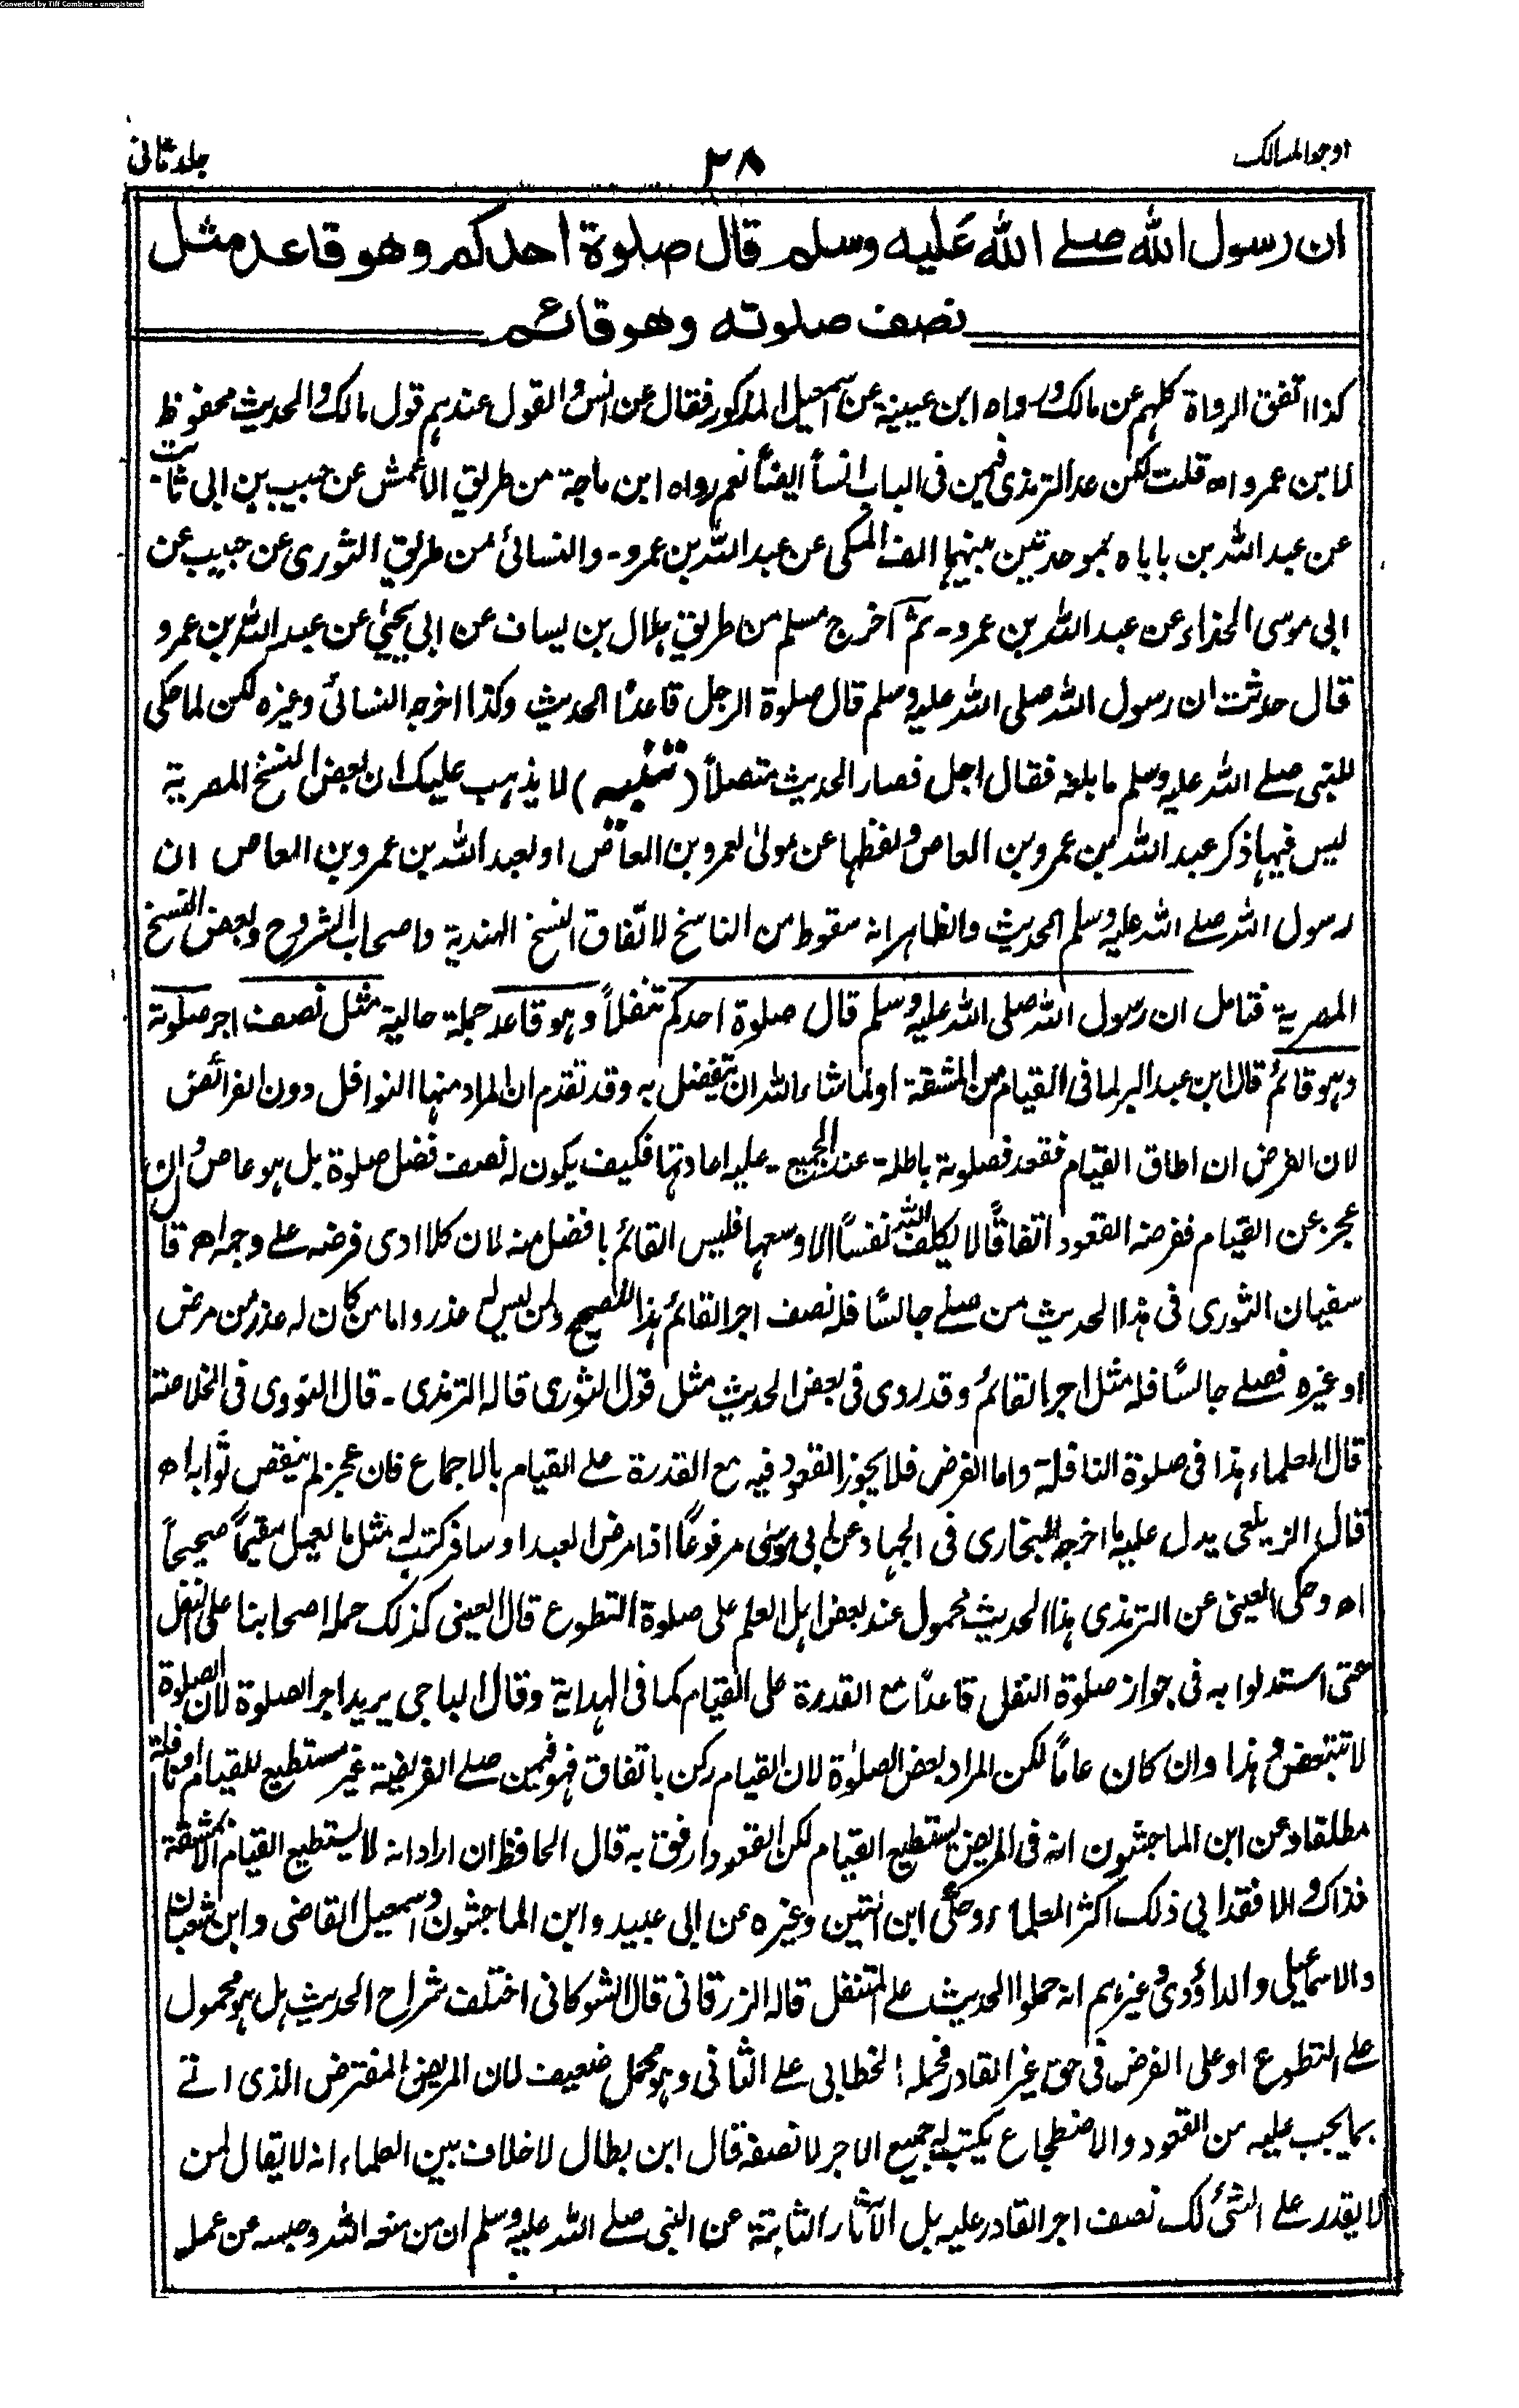 Converted by Tiff Combine - unregistered
اوجز المسالك
٣٨
جلد ثانى
ان رسول الله صلے الله عليه وسلم قال صلوة احدكم وهو قاعد مثل
نصف صلوته وهو قائم
كذا اتفق الرواة كلهم عن مالك ورواه ابن عيينة عن اسمعيل المذكور فقال عن انس والقول عندهم قول مالك والحديث محفوظ
لابن عمرو اه قلت لكن عد الترمذى فيمن فى الباب انسا ايضاً نعم رواه ابن ماجة من طريق الاعمش عن حبيب بن ابى ثابت
عن عبد الله بن باباه بموحدتين بينهما الف المكى عن عبد الله بن عمرو - والنسائى من طريق الثورى عن حبيب عن
ابى موسى الحذاء عن عبد الله بن عمرو - ثم اخرج مسلم من طريق هلال بن يساف عن ابى يحيىٰ عن عبد الله بن عمرو
قال حدثت ان رسول الله صلى الله عليه وسلم قال صلوة الرجل قاعدًا الحديث وكذا اخرجه النسائى وغيره لكن لما حكى
للنبى صلے الله عليه وسلم ما بلغه فقال اجل فصار الحديث متصلاً (تنبيه) لا يذهب عليك ان بعض النسخ المصرية
ليس فيها ذكر عبد الله بن عمرو بن العاص ولفظها عن مولىٰ لعمرو بن العاص او لعبد الله بن عمرو بن العاص ان
رسول الله صلے الله عليه وسلم الحديث والظاهر انه سقوط من الناسخ لاتفاق النسخ الهندية واصحاب الشروح وبعض النسخ
المصرية فتامل ان رسول الله صلى الله عليه وسلم قال صلوة احدكم تنفلاً وهو قاعد جملة حالية مثل نصف اجر صلوته
وهو قائم قال ابن عبد البر لما فى القيام من المشقة او لما شاء الله ان يتفضل به وقد تقدم ان المراد منها النوافل دون الفرائض
لان الفرض ان اطاق القيام فقعد فصلوته باطلة - عند الجميع - عليه اعادتها فكيف يكون له نصف فضل صلوة بل هو عاص وان
عجز عن القيام ففرضه القعود اتفاقًا لا يكلف الله نفسًا الا وسعها فليس القائم بافضل منه لان كلا ادى فرضه علے وجهه اه قا
سفيان الثورى فى هذا الحديث من صلے جالسًا فله نصف اجر القائم هذا للصحيح ولمن ليس له عذر واما من كان له عذر من مرض
او غيره فصلے جالسًا فله مثل اجر القائم وقد روى فى بعض الحديث مثل قول الثورى قاله الترمذى - قال النووى فى الخلاصة
قال العلماء هذا فى صلوة النافلة واما الفرض فلا يجوز القعود فيه مع القدرة علے القيام بالاجماع فان عجز لم ينقص ثوابه اه
قال الزيلعى يدل عليه ما اخرجه البخارى فى الجهاد عن ابى موسى مرفوعًا اذا مرض العبد او سافر كتب له مثل ما يعمل مقيماً صحيحاً
اه وحكى العينى عن الترمذى هذا الحديث محمول عند بعض اهل العلم على صلوة التطوع قال العينى كذلك حمله اصحابنا على النفل
حتى استدلوا به فى جواز صلوة النفل قاعدًا مع القدرة على القيام كما فى الهداية وقال الباجى يريد اجر الصلوة لان الصلوة
لا تتبعض وهذا وان كان عامًا لكن المراد بعض الصلوٰة لان القيام ركن باتفاق فهو فيمن صلے الفريضة غير مستطيع للقيام او نافلة
مطلقا وعن ابن الماجشون انه فى المريض يستطيع القيام لكن القعود ارفق به قال الحافظ ان اراد انه لا يستطيع القيام الا بمشقة
فذاك والا فقد ابى ذلك اكثر العلماء وحكى ابن التين وغيره عن ابى عبيد وابن الماجشون واسمعيل القاضى وابن شعبان
والاسماعيلى والداؤدى وغيرهم انه حملوا الحديث علے المتنفل قاله الزرقانى قال الشوكانى اختلف شراح الحديث هل هو محمول
علے التطوع او على الفرض فى حق غير القادر فحمله الخطابى علے الثانى وهو محمل ضعيف لان المريض المفترض الذى اتے
بما يجب عليه من القعود والاضطجاع يكتب له جميع الاجر لا نصفه قال ابن بطال لا خلاف بين العلماء انه لا يقال لمن
لا يقدر علے الشئ لك نصف اجر القادر عليه بل الآثار الثابتة عن النبى صلے الله عليه وسلم ان من منعه الله وحبسه عن عمله